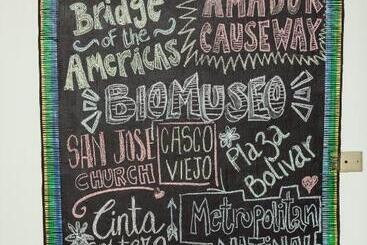 Bridge
of the
Americas
AMADOR
CAUSEWAY
BIOMUSEO
SAN JOSE
CHURCH
CASCO
VIEJO
Plaza
Bolivar
Cinta
Metropolitan